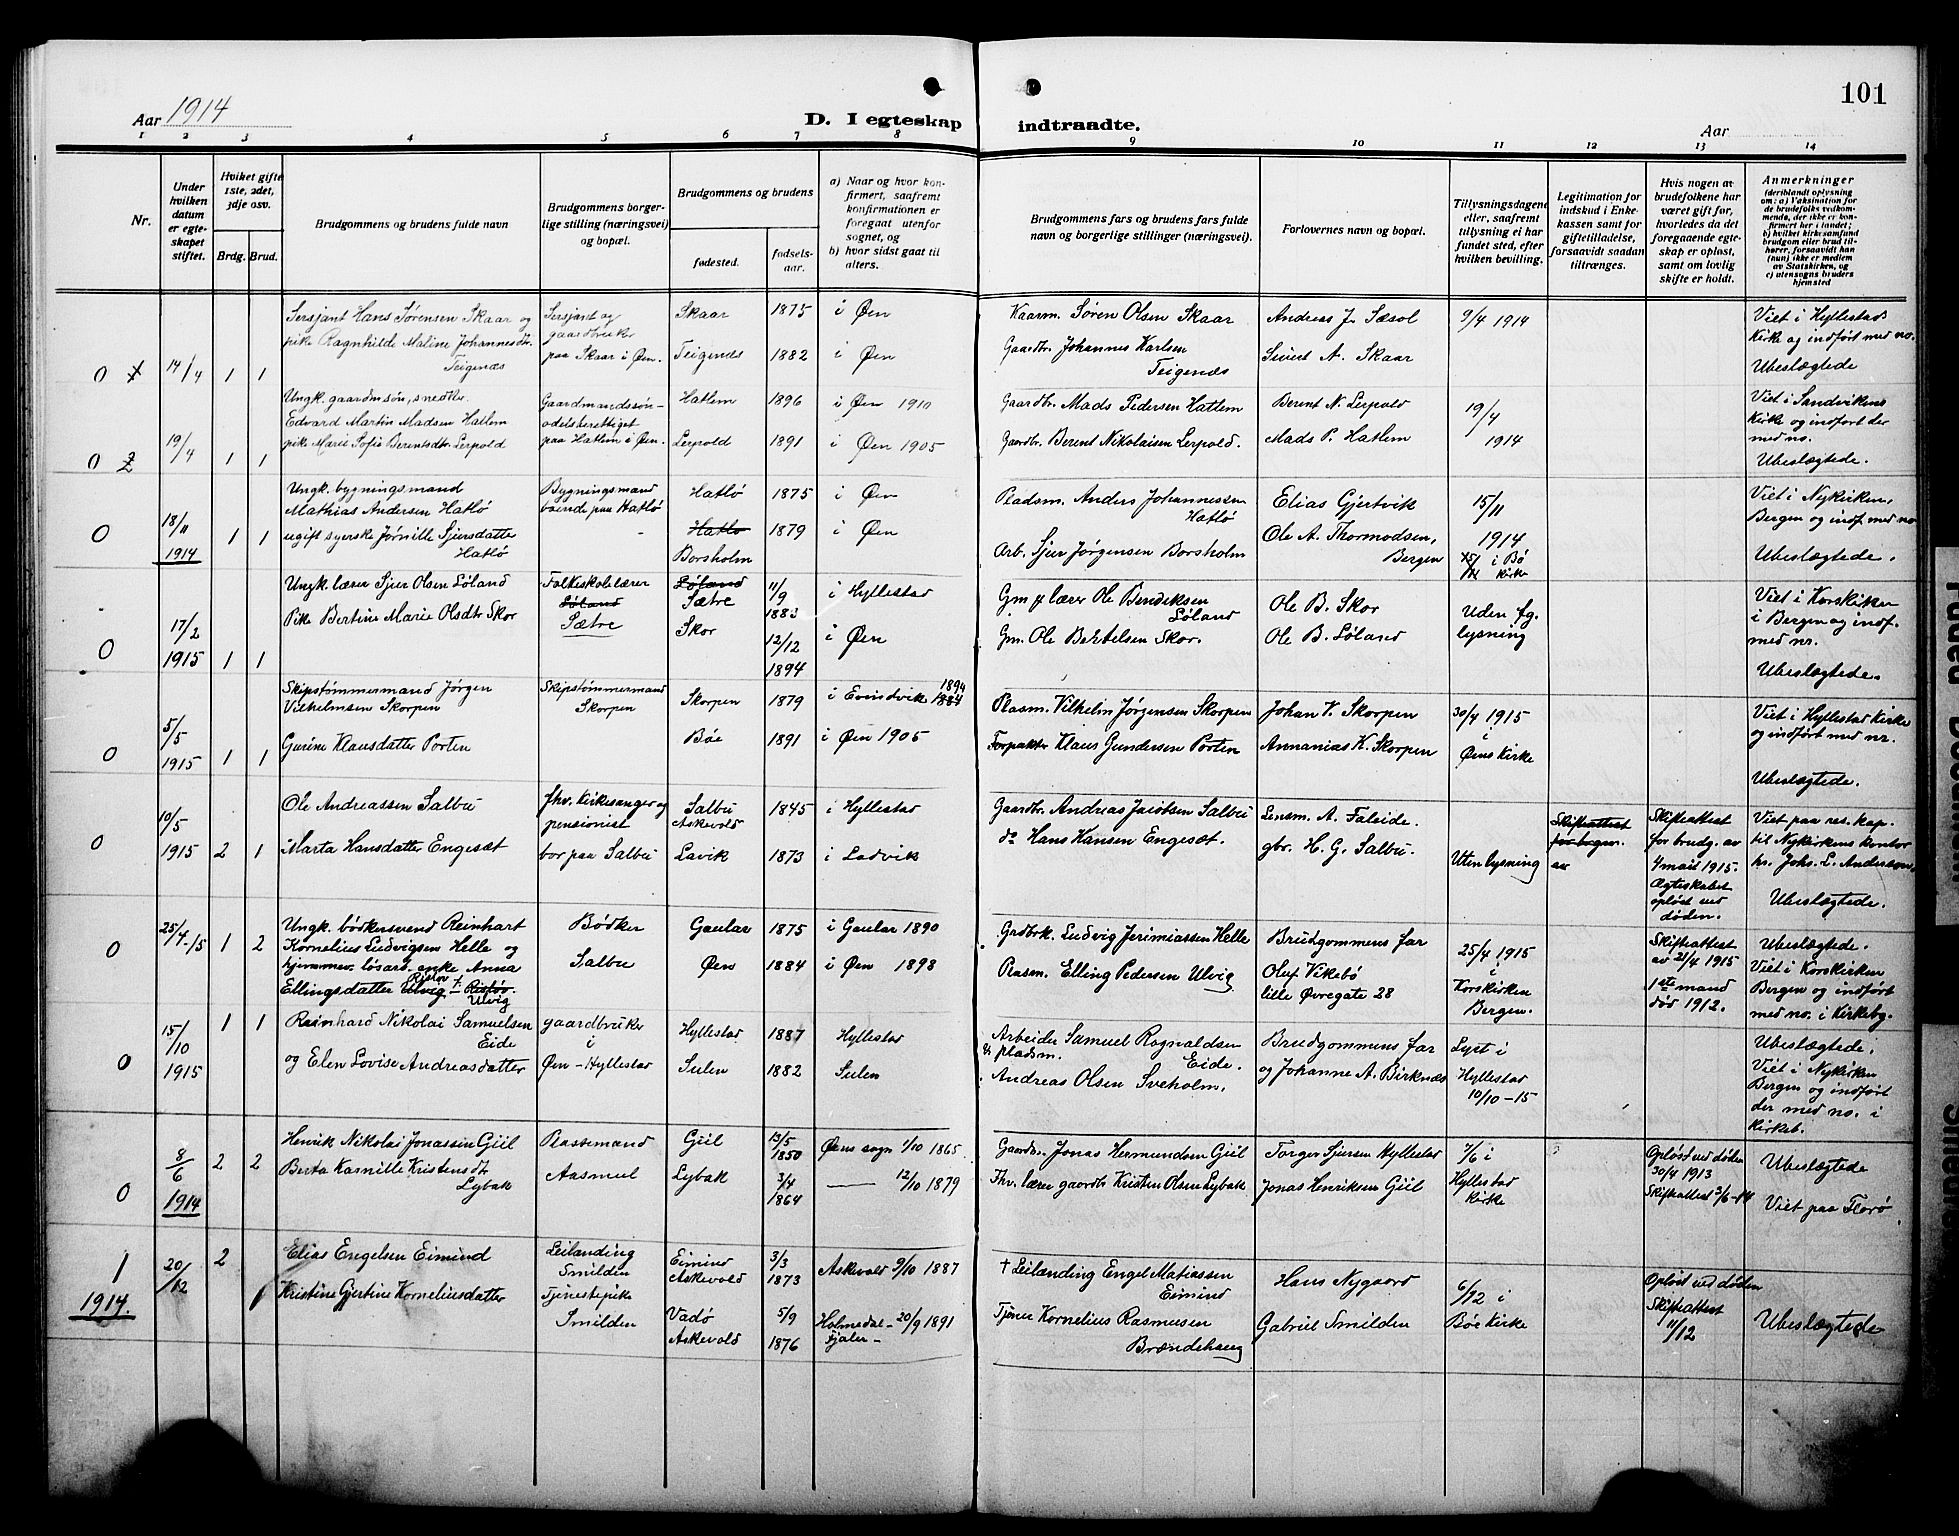 101
Aar 1914
D. Iegteskap
indtraadte.
Aar
1 2 3 4 5 6 7 8 9 10 11 12 13 14
Nr.
Under
hvilken
datum
er egte-
skapet
stiftet.
Hviket gifte
1ste, 2det,
3dje osv.
Brdg. Brud.
Brudgommens og brudens fulde navn
Brudgommens borger-
lige stilling (næringsvei)
og bopæl.
Brudgommens og brudens
fødested.
fødsels-
aar.
a) Naar og hvor kon-
firmert, saafremt
konfirmationen er
foregaat utenfor
sognet, og
b) hvor sidst gaat til
alters.
Brudgommens fars og brudens fars fulde
navn og borgerlige stillinger (næringsvei).
Forlovernes navn og bopæl.
Tillysningsdagene
eller, saafremt
tillysning ei har
fundet sted, efter
hvilken bevilling.
Legitimation for
indskud i Enke-
kassen samt for
giftetilladelse,
forsaavidt saadan
tiltrænges.
Hvis nogen av
brudefolkene har
været gift for,
hvorledes da det
foregaaende egte-
skap er opløst,
samt om lovlig
skifte er holdt.
Anmerkninger
(deriblandt oplysning
om: a) Vaksination for
de brudefolks vedkom-
mende, der ikke er kon-
firmert her i landet;
b) hvilket kirkesamfund
brudgom eller brud til-
hører, forsaavidt han
(hun) ikke er medlem
av Statskirken, og
c) utensogns bruders
hjemsted
0 1 14/4 1 1
Sersjant Hans Sørensen Skaar og
pike Ragnhilde Maline Johannesdtr.
Teigenæs
Sersjant og
gaardbruker
paa Skaar i Øen.
Skaar 1875 i Øen
Teigenæs 1882 i Øen
Kaarm. Søren Olsen Skaar
Gaardbr. Johannes Karlsen
Teigenæs
Andreas J. Sæsol
Sivert A. Skaar
9/4 1914
Viet i Hyllestad
Kirke og indført med no.
Ubeslægtede
0 2 19/4 1 1
Ungk. gaardmsøn, snedker
Edvard Martin Madsen Hatlem
pike Marie Sofie Berentsdtr. Lerpold
Gaardmandssøn-
odelsberettiget
paa Hatlem i Øen.
Hatlem 1896 i Øen 1910
Lerpold 1891 i Øen 1905
Gaardbr. Mads Pedersen Hatlem
Gaardbr. Berent Nikolaisen Lerpold.
Berent N. Lerpold
Mads P. Hatlem
19/4
1914
Viet i Sandvikens
Kirke og indført der
med no.
Ubeslægtede.
0 18/11 1914 1 1
Ungk. bygningsmand
Mathias Andersen Hatlø
ugift syerske Jørnille Sjursdatter
Hatlø
Bygningsmand
boende paa Hatlø
-
Hatlø 1875 i Øen
Hatlø 1879 i Øen
Borsholm
Pladsm. Anders Johannessen
Hatlø
Arb. Sjur Jørgensen Borsholm
Elias Gjertvik
Ole A. Thormodsen,
Bergen
15/11
1914
i Bø
Kirke
Viet i Nykirken,
Bergen og indf. med no
Ubeslægtede.
0 17/2 1915 1 1
Ungk. lærer Sjur Olsen Løland
Pike Bertine Marie Olsdtr Skor
Folkeskolelærer
Løland
Sætre
Løland
Sætre
Skor
11/9
1883
12/12
1894
i Hyllestad
i Øen
Gm & lærer Ole Bendiksen
Løland
Gm. Ole Bertelsen Skor.
Ole B. Skor
Ole B. Løland
Uden fg.
lysning
Viet i Korskirken
i Bergen og indf.
med nr.
Ubeslægtede.
0 5/5 1915 1 1
Skipstømmermand Jørgen
Vilhelmsen Skorpen
Gurine Klausdatter Porten
Skipstømmermand
Skorpen
Skorpen 1879 i Evindvik 1884 1894
Bøe 1891 i Øen 1905
Plasm. Vilhelm Jørgensen Skorpen
Forpakter Klaus Gundersen Porten
Johan V. Skorpen
Annanias K. Skorpen
30/4 1915
i
Øens Kirke
Viet i Hyllestad Kirke
og indført med nr.
Ubeslægtede.
0 10/5 1915 2 1
Ole Andreassen Salbu
Marta Hansdatter Engesæt
fhv. Kirkesanger og
pensionist
bor paa Salbu
Salbu
Askevold
Lavik
1845 i Hyllestad
1873 i Ladvik
Gaardbr. Andreas Jacobsen Salbu
do Hans Hansen Engesæt.
Lensm. A. Faleide.
gbr. H. G. Salbu.
Uten lysning
Skifteattest
for brgm.
av
Skifteattest
for brudg. av
4 mars 1915.
Ægteskabet
opløst ved
døden.
Viet paa res. kap.
til Nykirkens kontor
hr. Johs. L. Andersen.
Ubeslægtede.
0 25/4-15 1 2
Ungk. bødkersvend Reinhart
Kornelius Ludvigsen Helle og
hjemmev. løsarb. enke Anna
Ellingsdatter Ulvig Risløv f: Risløv.
Ulvig
Bødker
Salbu
Gaular 1875 i Gaular 1890
Øen 1884 i Øen 1898
Grdbrk. Ludvig Jerimiassen Helle
Plasm. Elling Pedersen Ulvig
Brudgommens far
Oluf Vikebø
lille Øvregate 28
25/4 1915
i
Korskirken
Bergen.
Skifteattest
av 21/4 1915
1ste mand
død 1912.
Ubeslægtede.
Viet i Korskirken
Bergen og indført
med no. i Kirkebg.
0 15/10 1915 1 1
Reinhard Nikolai Samuelsen
Eide
og Elen Lovise Andreasdatter
gaardbruker
i
Øen - Hyllestad
Hyllestad 1887 Hyllestad
Sulen 1882 Sulen
Arbeider Samuel Ragnvaldsen
& pladsm. Eide.
Andreas Olsen Sveholm.
Brudgommens far
og Johanne A. Birknæs
Lyst i
Hyllestad
10/10-15
Ubeslægtede.
Viet i Nykirken
Bergen og indført
der med no. i
kirkeb.
0 8/6 1914 2 2
Henrik Nikolai Jonassen Giil
Berta Karnille Kristensdtr
Lybak
Plassemand
Aasmul
Giil 13/5 1850 Øens sogn 1/10 1865
Lybak 3/4 1864 — 12/10 1879
Gaardbr. Jonas Hermundsen Giil
Fhv. lærer gaardbr Kristen Olsen Lybak
Torger Sjursen Hyllestad
Jonas Henriksen Giil
7/6 i
Hyllestad
Kirke
Opløst ved døden
30/4 1913
Skifteattest 3/6-14
Ubeslægtede
Viet paa Florø
1
1914.
20/12 2 1
Elias Engelsen Eimind
Kristine Gjertine Korneliusdatter
Leilænding
Smilden
Tjenestepike
Smilden
Eimind
Askevold
Vadø
Askevold
3/3
1873
5/9
1876
Askevold 9/10 1887
Holmedal - 20/9 1891
Fjaler -
† Leilænding Engel Matiassen
Eimind
Tjener Kornelius Rasmusen
Brændehaug
Hans Nygaard
Gabriel Smilden
6/12 i
Bøe Kirke
Opløst ved døden
Skifteattest
11/12
Ubeslægtede